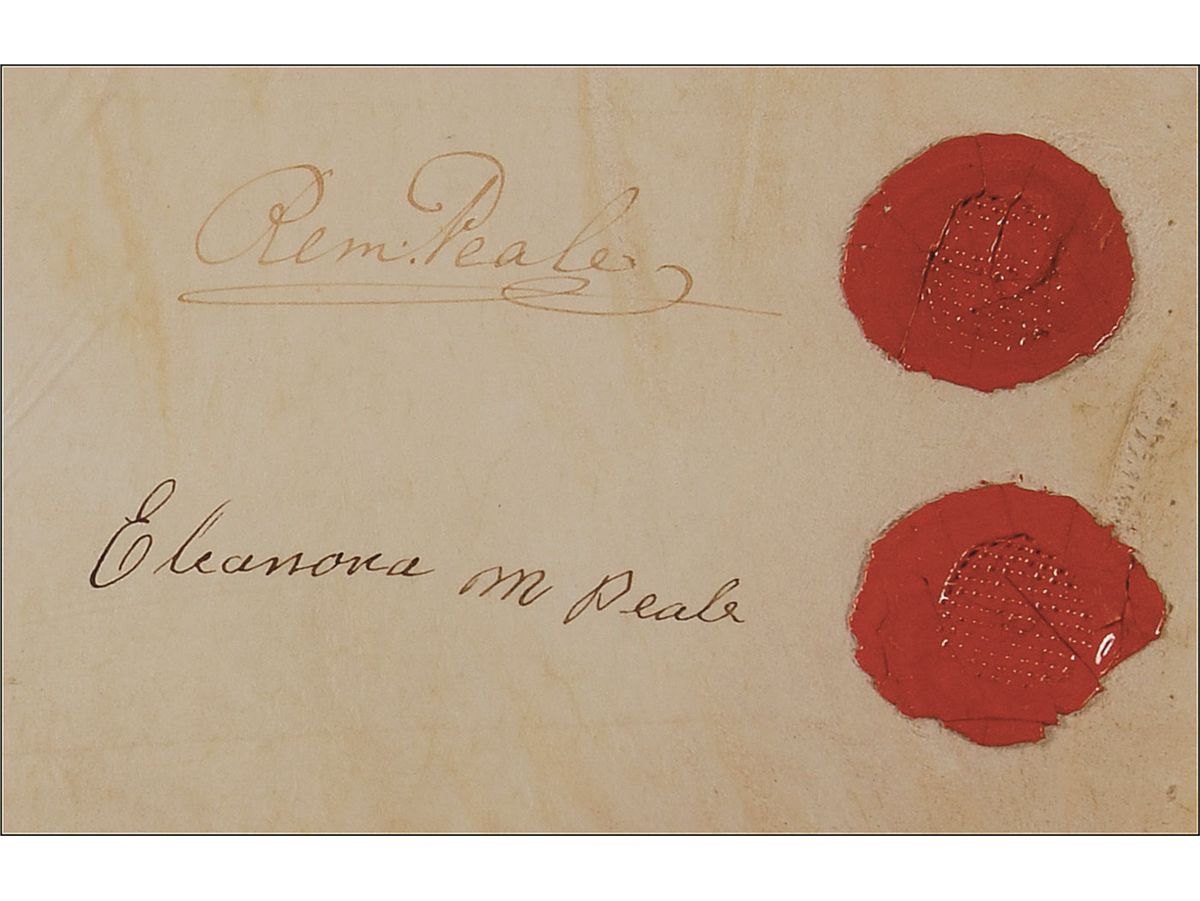 Rem: Peale
Eleanora M Peale